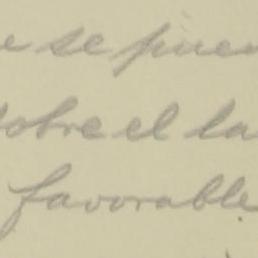 e se puen
sobre el la
favorable